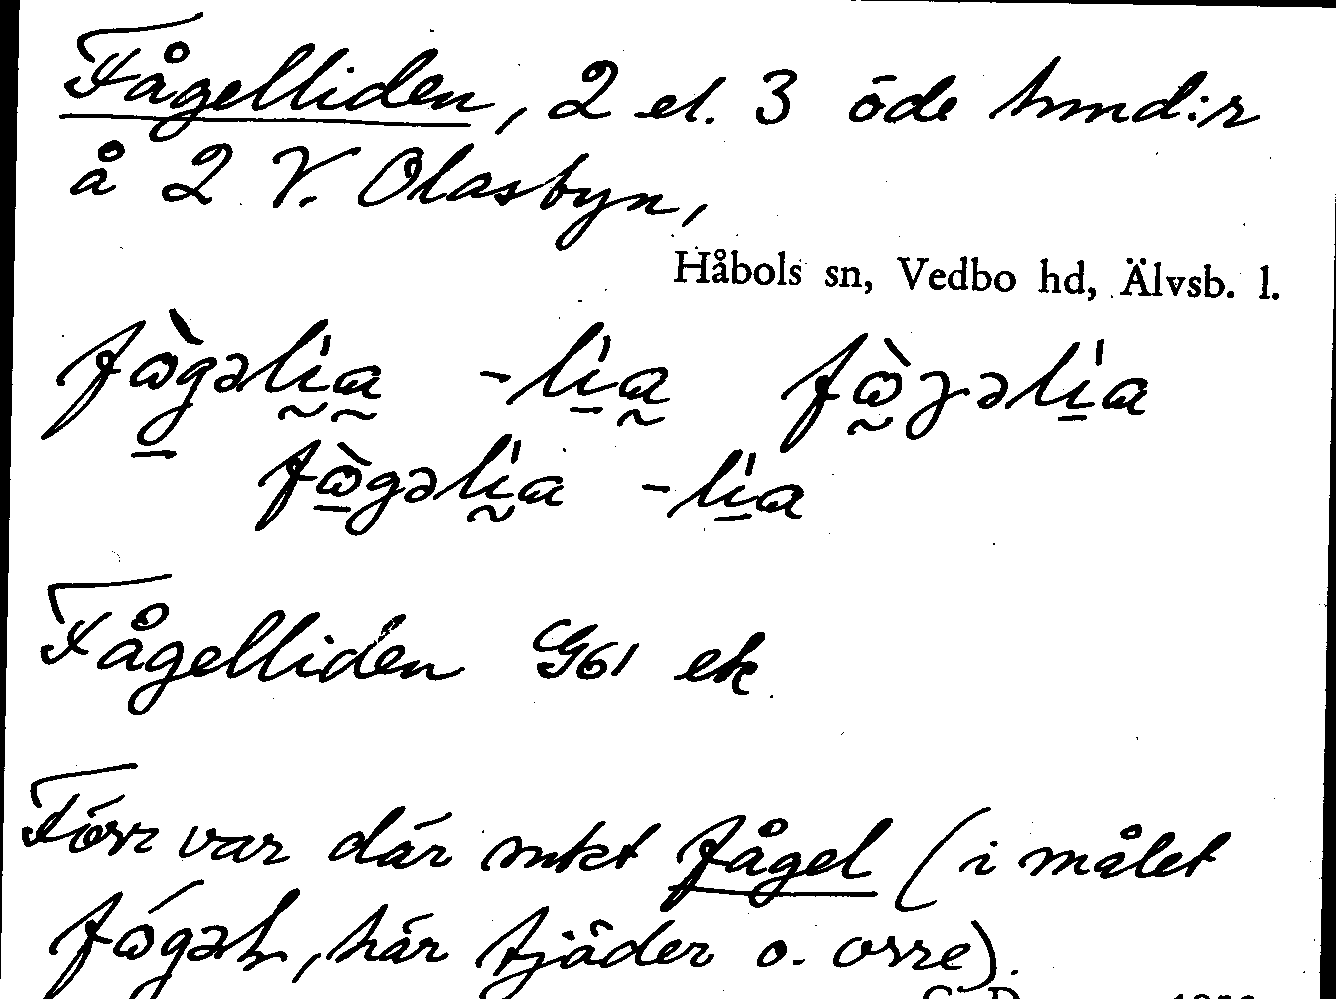 Fågelliden, 2 el. 3 öde hmd:r
å 2 V. Olasbyn,
Håbols sn, Vedbo hd, Älvsb. l.
fὼgəli̱a -li̱a fὼgəli̱a
fὼgəli̱a -li̱a
Fågelliden G61 ek
Förr var där mkt fågel (i målet
här tjäder o. orre).